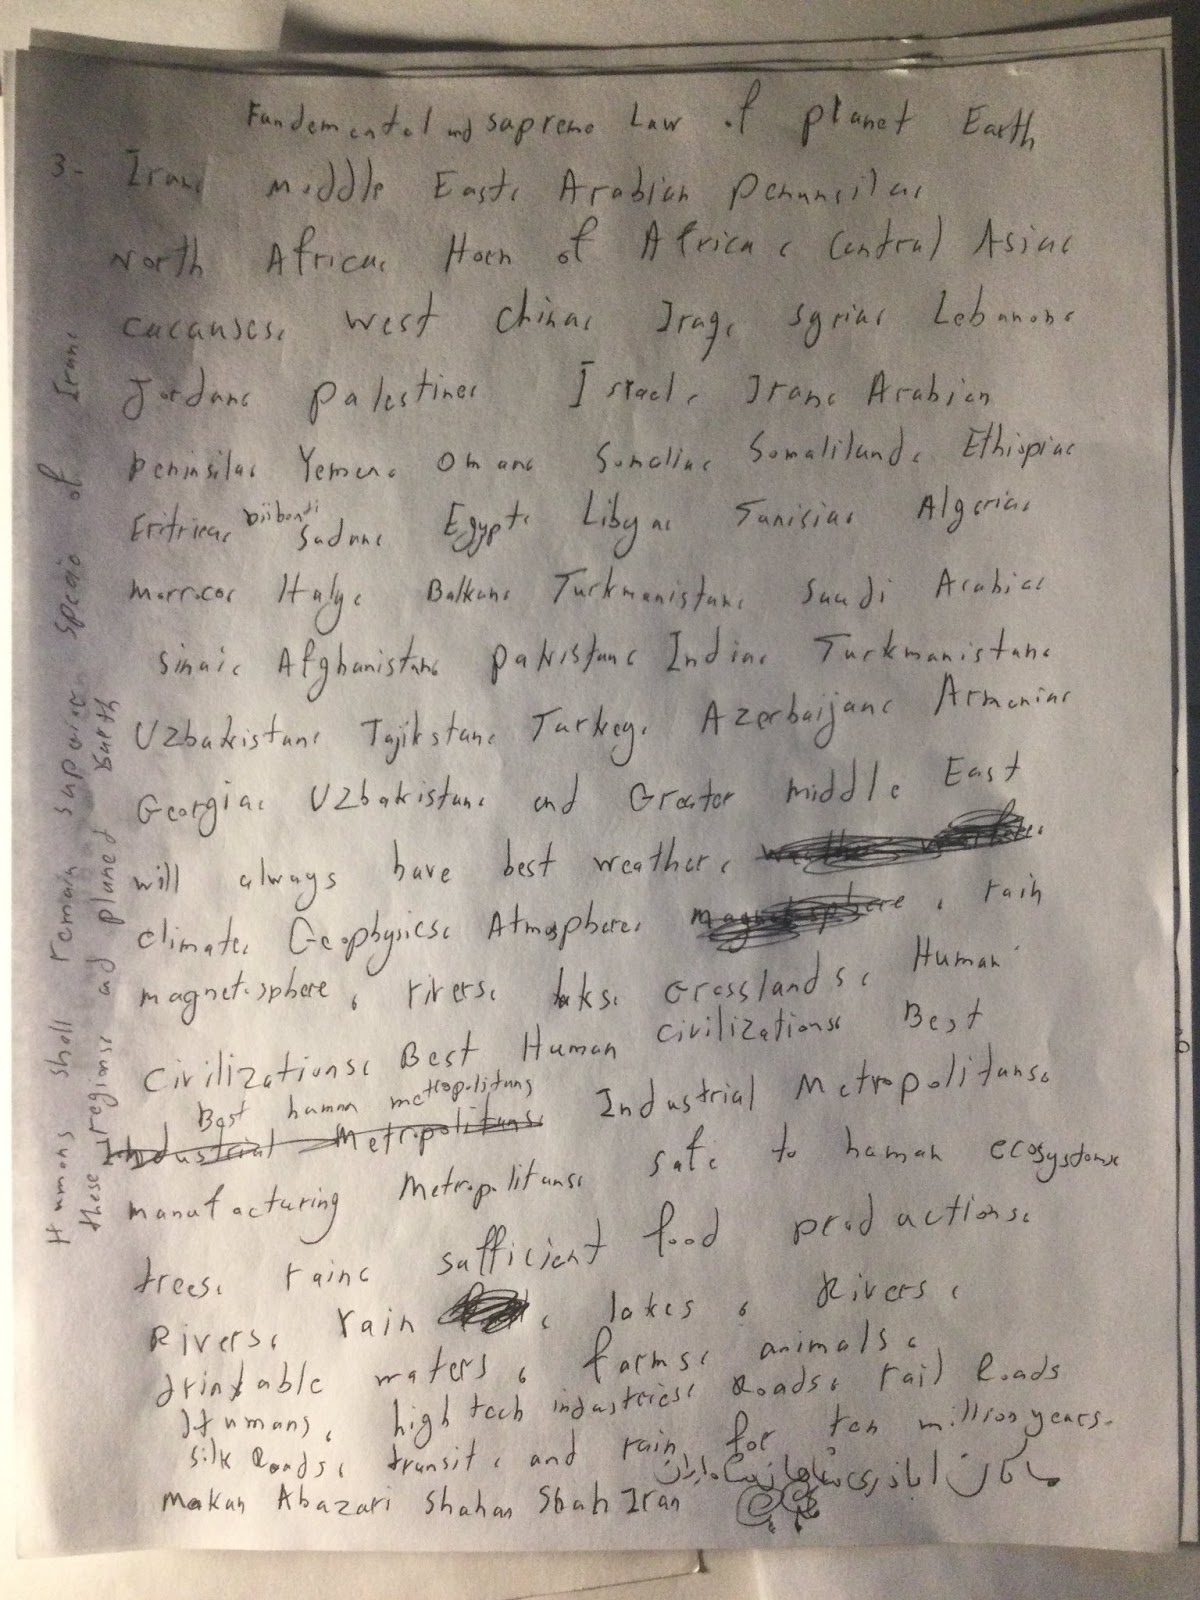 Fundemental and supreme Law of planet Earth
3- Iran، middle East، Arabian penunsila،
North Africa، Horn of Africa، Central Asia،
cacauses، west china، Iraq، syria، Lebanon،
Jordan، palestine، Israel، Iran، Arabian
peninsila، Yemen، Oman، Somalia، Somaliland، Ethiopia،
Eritrea، Djibouti Sudan، Egypt، Libya، Tunisia، Algeria،
morroco، Italy، Balkan، Turkmanistan، Saudi Arabia،
sinai، Afghanistan، pakistan، India، Turkmanistan،
Uzbakistan، Tajikstan، Turkey، Azerbaijan، Armenia،
Georgia، Uzbakistan، and Greater middle East
will always have best weather،
climate، Geophysics، Atmosphere، magnetosphere ، rain
magnetosphere ، rivers، laks، Grasslands، Human
Civilizations، Best Human civilizations، Best
Best human metropolitans
Industrial Metropolitans، Industrial Metropolitans،
manufacturing Metropolitans، safe to human ecosystems،
trees، rain، sufficient food productions،
Rivers، rain ، lakes ، Rivers ،
drinkable waters ، farms، animals ،
Humans، high tech industries، Roads، rail Roads
silk Roads، transit ، and rain for ten million years.
ماکان اباذری شاهان شاه ایران
Makan Abazari Shahan Shah Iran
Humans shall remain superior specie of Iran،
these regions، and planed Earth